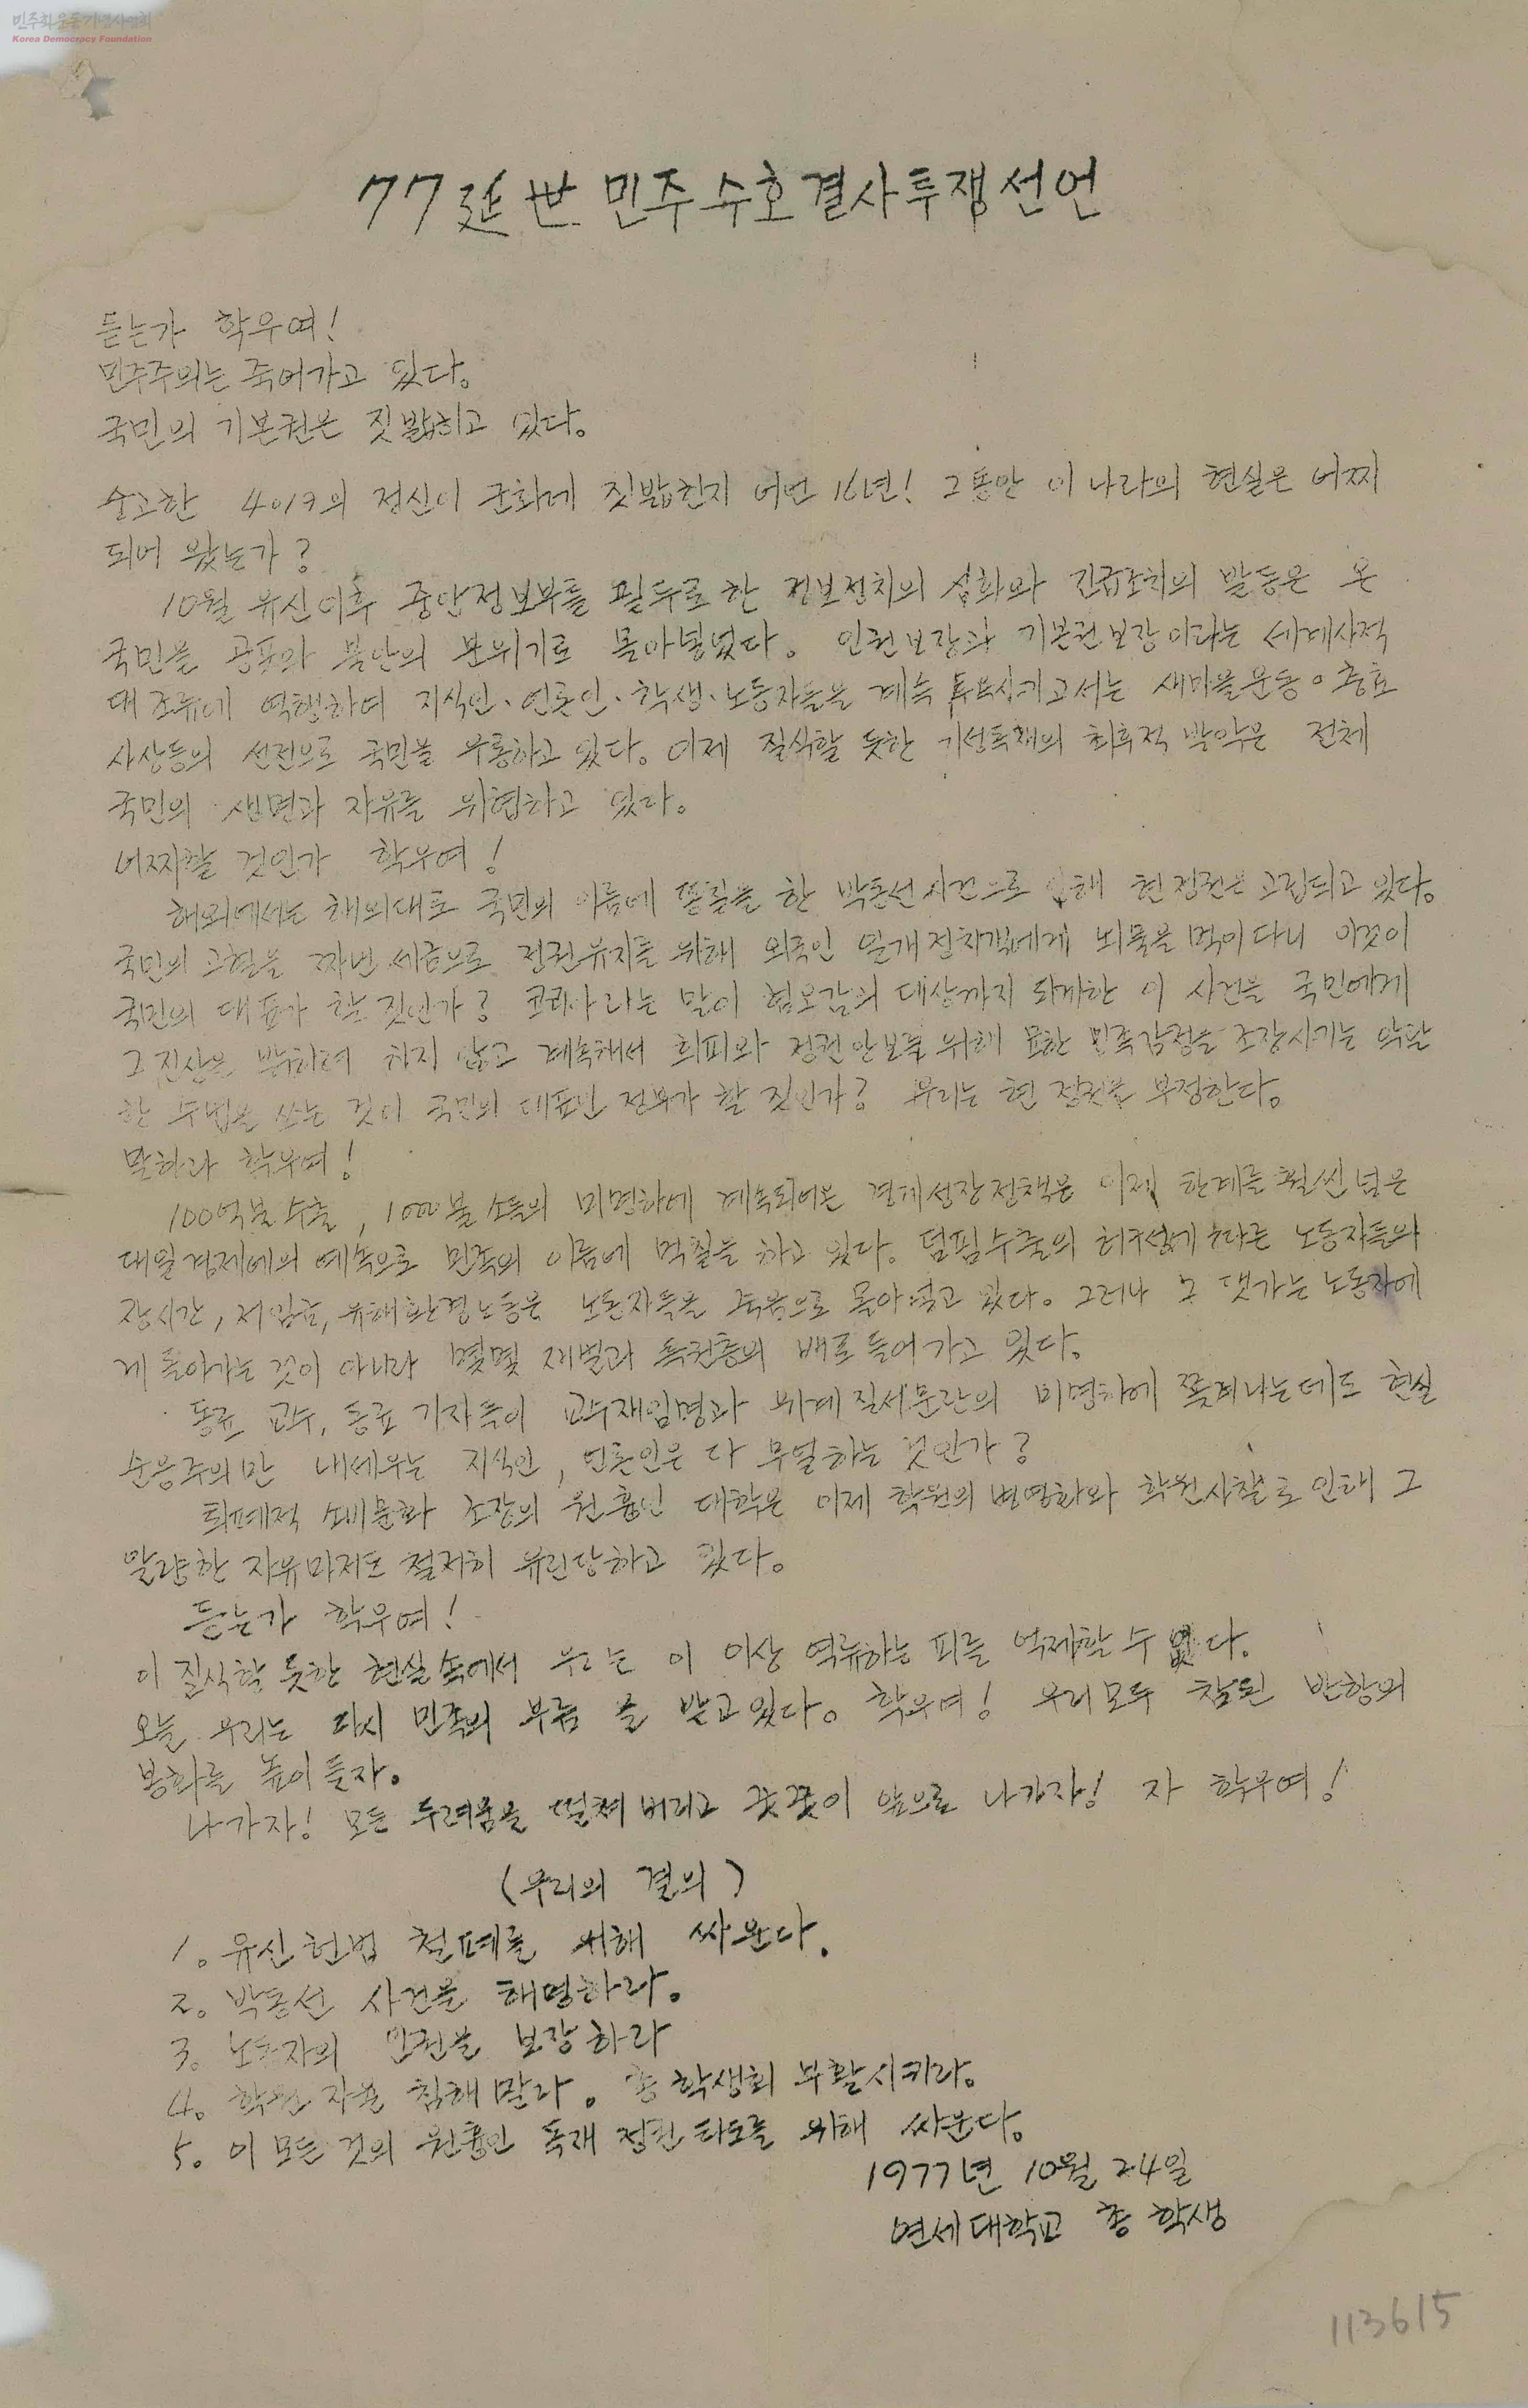 민주화운동기념사업회
Korea Democracy Foundation
77延世 민주수호결사투쟁선언
듣는가 학우여!
민주주의는 죽어가고 있다。
국민의 기본권은 짓밟히고 있다。
숭고한 4019의 정신이 군화에 짓밟힌지 어언 16년! 그동안 이 나라의 현실은 어찌
되어 왔는가?
10월 유신이후 중앙정보부를 필두로 한 정보정치의 심화와 긴급조치의 발동은 온
국민을 공포와 불안의 분위기로 몰아넣었다。 인권보장과 기본권보장이라는 세계사적
대조류에 역행하여 지식인·언론인·학생·노동자들을 계속 투옥시키고서는 새마을운동。충효
사상등의 선전으로 국민을 우롱하고 있다。이제 질식할 듯한 기성독재의 최후적 발악은 전체
국민의 생명과 자유를 위협하고 있다。
어찌할 것인가 학우여!
해외에서는 해외대로 국민의 이름에 똥칠을 한 박동선사건으로 인해 현정권은 고립되고 있다。
국민의 고혈을 짜낸 세금으로 정권유지를 위해 외국인 일개정치객에게 뇌물을 먹이다니 이것이
국민의 대표가 할 짓인가? 코리아라는 말이 혐오감의 대상까지 되게한 이 사건을 국민에게
그 진상을 밝히려 하지 않고 계속해서 회피와 정권안보를 위해 묘한 민족감정을 조장시키는 악랄
한 수법을 쓰는 것이 국민의 대표인 정부가 할 짓인가? 우리는 현 정권을 부정한다。
말하라 학우여!
100억불 수출, 1000불 소득의 미명하에 계속되어온 경제성장정책은 이제 한계를 훨씬 넘은
대일경제에의 예속으로 민족의 이름에 먹칠을 하고 있다。덤핑수출의 허구성에 따른 노동자들의
장시간, 저임금, 유해환경노동은 노동자들을 죽음으로 몰아넣고 있다。그러나 그 댓가는 노동자에
게 돌아가는 것이 아니라 몇몇 재벌과 특권층의 배로 들어가고 있다。
동료 교수, 동료 기자들이 교수재임명과 위계질서문란의 미명하에 쫓겨나는데도 현실
순응주의만 내세우는 지식인, 언론인은 다 무얼하는 것인가?
퇴폐적 소비문화 조장의 원흉인 대학은 이제 학원의 병영화와 학원사찰로 인해 그
알량한 자유마저도 철저히 유린당하고 있다。
듣는가 학우여!
이 질식할 듯한 현실속에서 우리는 이 이상 역류하는 피를 억제할 수 없다。
오늘 우리는 다시 민족의 부름을 받고있다。학우여! 우리모두 참된 반항의
봉화를 높이 들자。
나가자! 모든 두려움을 떨쳐버리고 꿋꿋이 앞으로 나가자! 자 학우여!
(우리의 결의)
1。유신헌법 철폐를 위해 싸운다.
2。박동선 사건을 해명하라。
3。노동자의 인권을 보장하라
4。학원 자율 침해말라。총학생회 부활시키라。
5。이 모든 것의 원흉인 독재 정권 타도를 위해 싸운다。
1977년 10월 24일
연세대학교 총학생
113615